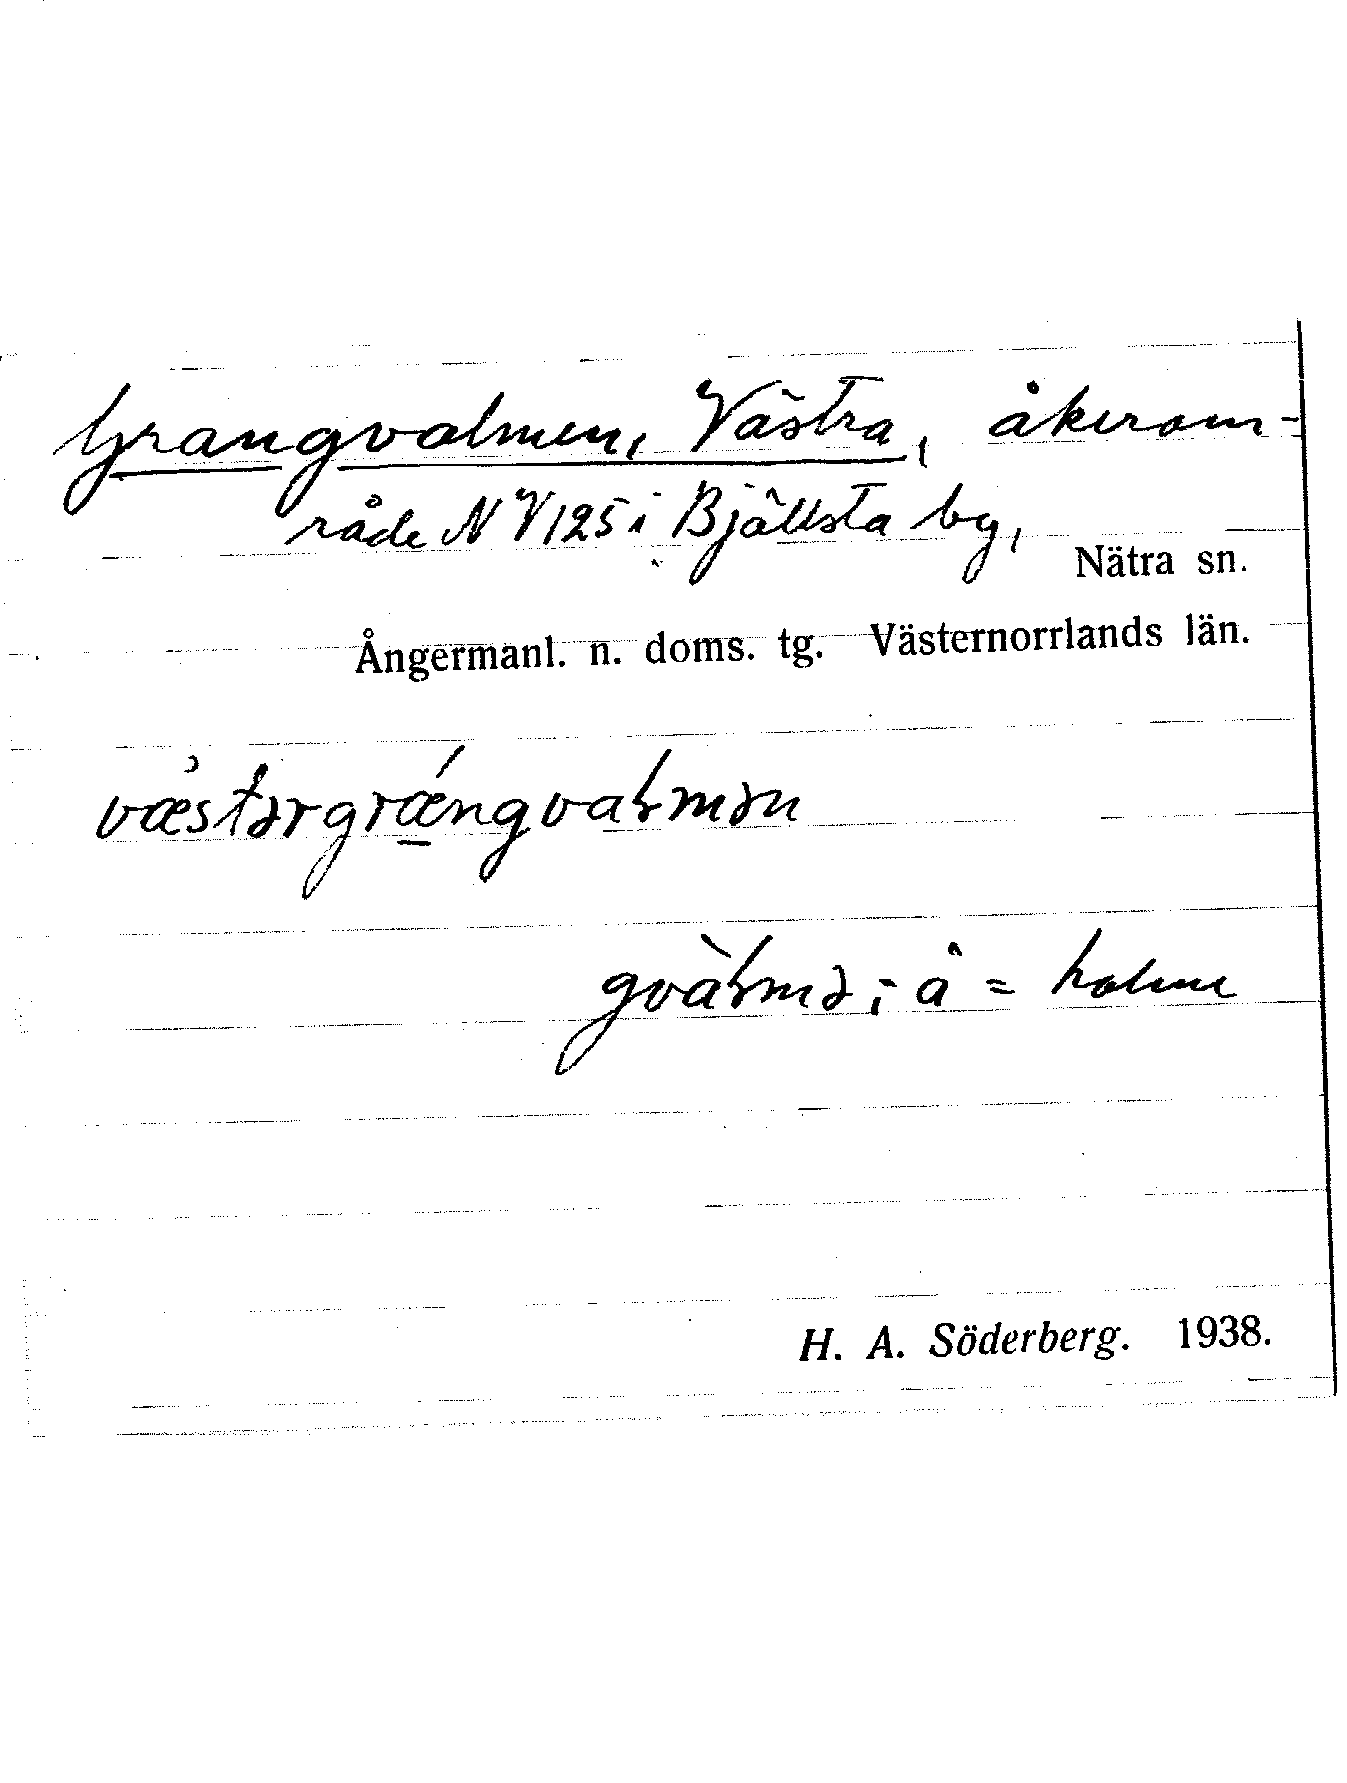 Grangvalmen, Västra, åkerom-
råde NV125 i Bjällsta by,
Nätra sn.
Ångermanl. n. doms. tg. Västernorrlands län.
væstərgrængvałmən
gvàłmə; å = holme
H. A. Söderberg. 1938.